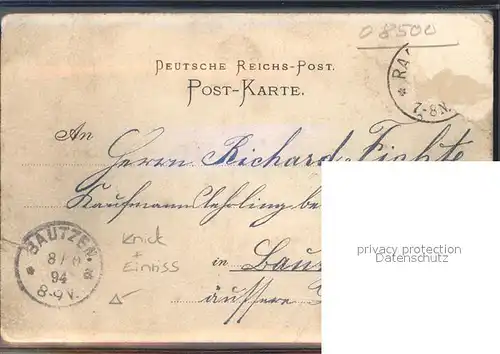 08500
DEUTSCHE REICHS-POST.
POST-KARTE.
* RA
7-8N.
An
Herrn Richard Fichte
Kaufmannslehrling be
in Bau
äussere
BAUTZEN
8/ 94
8-9V.
Knick
+
Einriss
privacy protection
Datenschutz